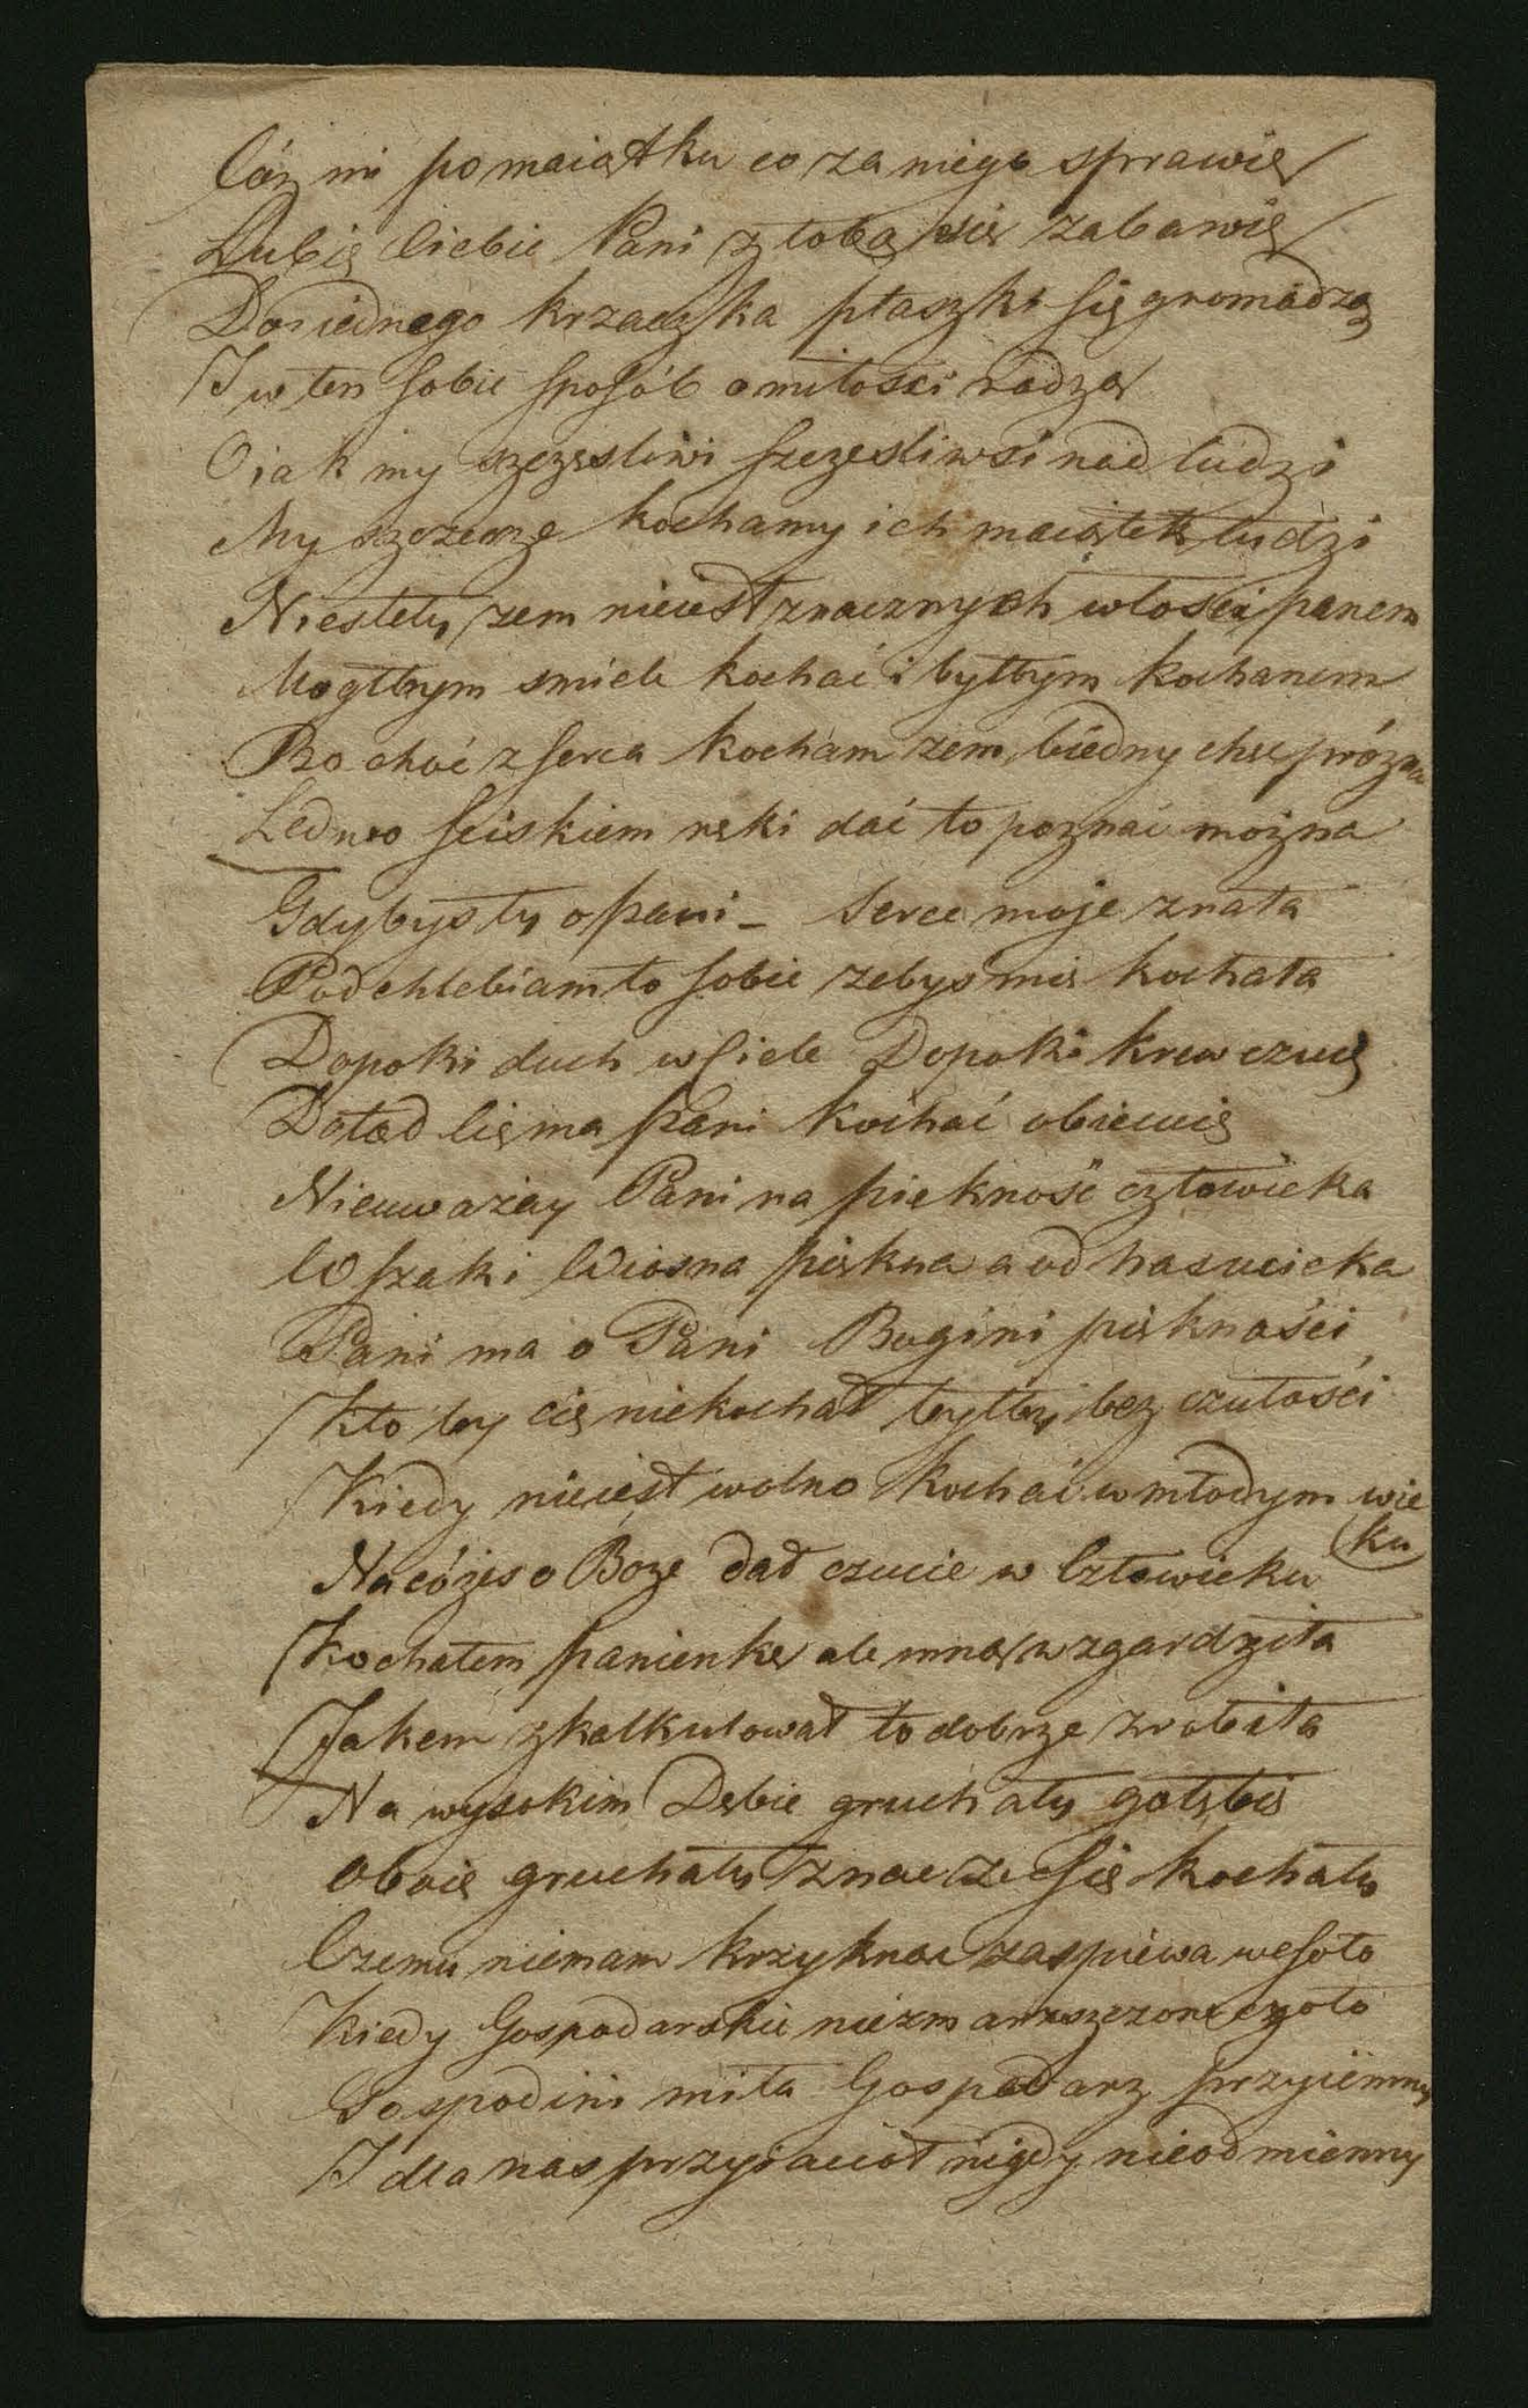 Cóż mi po maiątku co za niego sprawię
Lubię Ciebie Pani z tobą się zabawię
Do iednego krzaczka ptaszki się gromadzą
I w ten sobie sposób o miłosci radzą
O iak my szczęsliwi szczęsliwsi nad ludzi
My szczerze kochamy ich maiątek ludzi
Niestety zem nieiest znacznych włosci panem
Mogłbym smiele kochać i byłbym kochanem
Bo choć z serca kocham zem biedny chęć prózna
Ledwo sciskiem ręki dać to poznać można
Gdybys ty o pani _ Serce moje znała
Podchlebiam to sobie zebyś mię kochała
Dopoki duch w Ciele Dopoki krew czuię
Dotąd Cię ma pani kochać obiecuię
Nieuważay Pani na piekność człowieka
Wszaki Wiosna piękna a od nas ucieka
Pani ma o Pani Bogini piękności
Kto by cię niekochał byłby bez czułości
Kiedy nieiest wolno kochać w młodym wie
ku
Na cóżeś o Boże dał czucie w Człowieku
Kochałem panienkę ale mną wzgardziła
Jakem zkalkulował to dobrze zrobiła
Na wysokim Dębie gruchały gołębie
oboie gruchały znac ze się kochały
Czemu niemam krzyknac zaspiewa wesoło
Kiedy Gospodarskie niezmarszczone czoło
Gospodini miła Gospodarz przyiemny
I dla nas przyiaciol nigdy nieodmienny